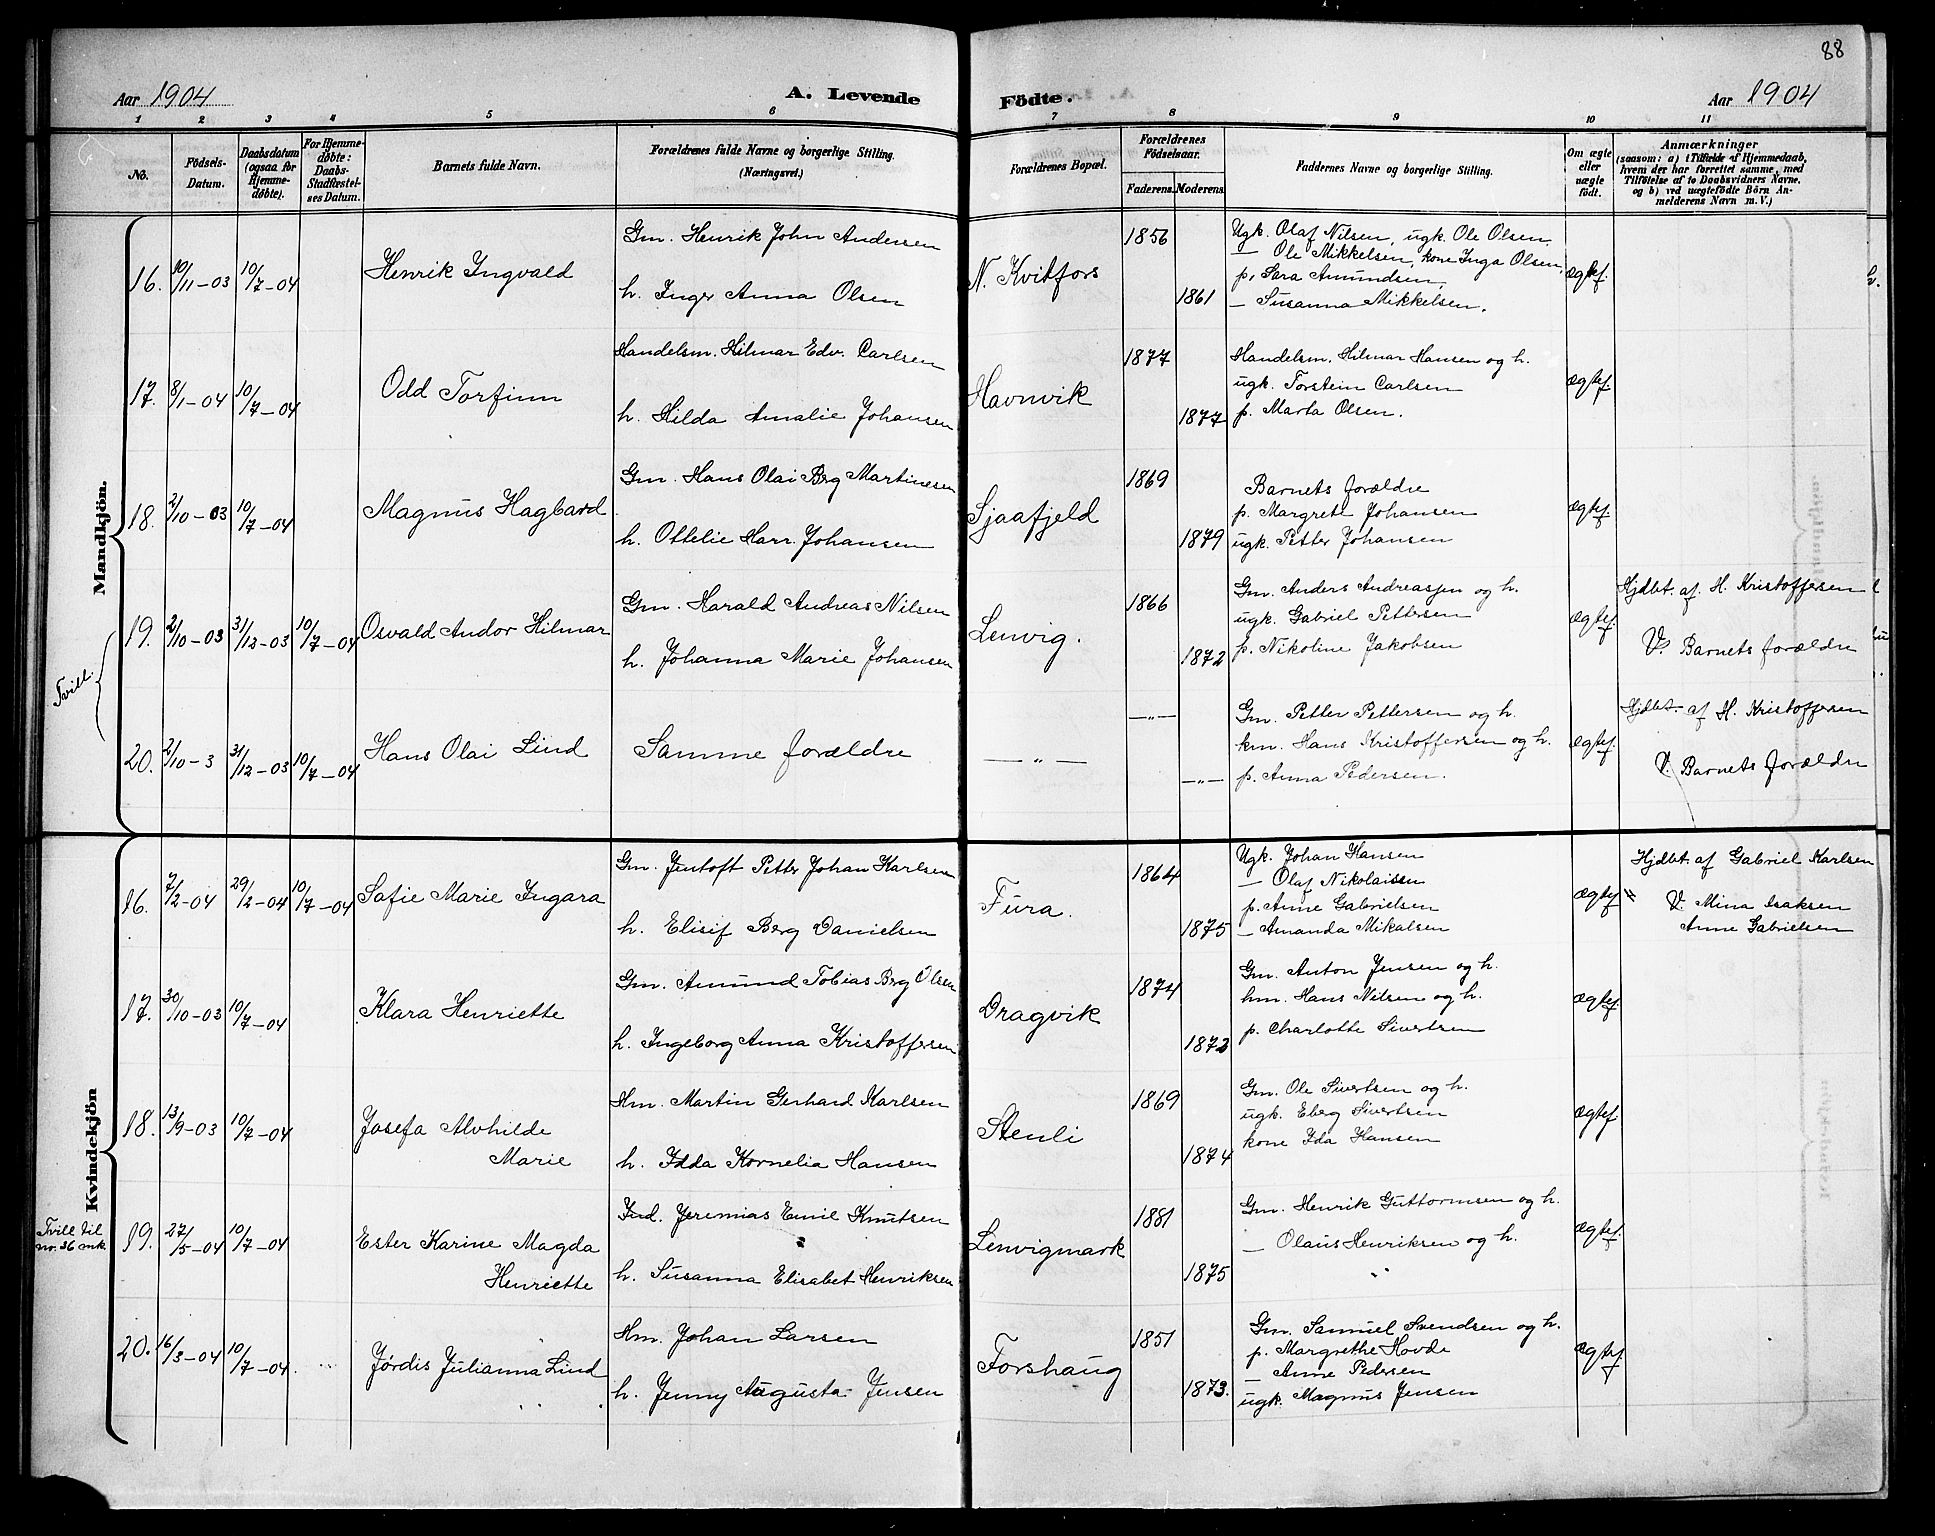 88
Aar 1904
A. Levende
Födte.
Aar 1904
1 2 3 4 5 6 7 8 9 10 11
No.
Födsels-Datum.
Daabsdatum (ogsaa for Hjemme-døbte).
For Hjemme-døbte: Daabs-Stadfæstel-ses Datum.
Barnets fulde Navn.
Forældrenes fulde Navne og borgerlige Stilling.
(Næringsvei.)
Forældrenes Bopæl.
Forældrenes Födselsaar.
Faderens. Moderens.
Faddernes Navne og borgerlige Stilling.
Om ægte eller uægte födt.
Anmærkninger
(saasom: a) i Tilfælde af Hjemmedaab,
hvem der har forrettet samme, med
Tilføtelse af to Daabsvidners Navne,
og b) ved uægtefödte Börn An-
melderens Navn m. V.)
Mandkjön.
16. 10/11-03 10/7-04 Henrik Ingvald
Gm. Henrik John Andersen
h. Inger Anna Olsen
N. Kvitfors
1856
1861
Ugk. Olaf Nilsen, ugk. Ole Olsen,
— Ole Mikkelsen, kone Inga Olsen,
p. Sara Amundsen,
— Susanna Mikkelsen.
ægtef.
17. 8/1-04 10/7-04 Odd Torfinn
Handelsm. Hilmar Edv. Carlsen
h. Hilda Amalie Johansen
Havnvik
1877
1877
Handelsm. Hilmar Hansen og h.
ugk. Torstein Carlsen
p. Marta Olsen.
ægtef.
18. 2/10-03 10/7-04 Magnus Hagbard
Gm. Hans Olai Brg Martinesen
h. Ottelie Harr. Johansen
Sjaafjeld
1869
1879
Barnets forældre
p. Margrete Johansen
ugk. Petter Johansen
ægtef.
Tvill.
19. 2/10-03 31/12-03 10/7-04 Osvald Andor Hilmar
Gm. Harald Andreas Nilsen
h. Johanna Marie Johansen
Lenvig.
1866
1872
Gm. Anders Andreassen og h.
ugk. Gabriel Pettersen
p. Nikoline Jakobsen
ægtef.
Hjdbt. af H. Kristoffersen
V. Barnets forældre
20. 2/10-3 31/12-03 10/7-04 Hans Olai Lind
Samme forældre
— „ —
—„—
—„—
Gm. Petter Pettersen og h.
km. Hans Kristoffersen og h.
p. Anna Pedersen.
ægtef.
Hjdbt. af H. Kristoffersen
V. Barnets forældre
Kvindekjön
16. 7/2-04 29/2-04 10/7-04 Safie Marie Ingara
Gm. Jentoft Petter Johan Karlsen
h. Elisif Berg Danielsen
Fura.
1864
1875
Ugk. Johan Hansen
— Olaf Nikolaisen
p. Anne Gabrielsen
— Amanda Mikalsen
ægtef
Hjdbt. af Gabriel Karlsen
V. Mina Isaksen
Anne Gabrielsen
17. 30/10-03 10/7-04 Klara Henriette
Gm. Amund Tobias Berg Olsen
h. Ingeborg Anna Kristoffersen
Dragvik
1874
1872
Gm. Anton Jensen og h.
hm. Hans Nilsen og h.
p. Charlotte Sivertsen
ægtef
18. 13/9-03 10/7-04 Josefa Alvhilde
Marie
Hm. Martin Gerhard Karlsen
h. Idda Kornelia Hansen
Stenli
1869
1874
Gm. Ole Sivertsen og h.
ugk. Eberg Sivertsen
kone Ida Hansen
ægtef
Tvill. til
nr. 36 mk.
19. 27/5-04 10/7-04 Ester Karine Magda
Henriette
Ind. Jeremias Emil Knutsen
h. Susanna Elisabet Henriksen
Lenvigmark
1881
1875
Gm. Henrik Guttormsen og h.
— Olaus Henriksen og h.
ægtef.
20. 16/3-04 10/7-04 Jørdis Julianna Lind
Hm. Johan Larsen
h. Jenny Augusta Jensen
Forshaug
1851
1873.
Gm. Samuel Svendsen og h.
p. Margrethe Hovde
— Anne Pedersen
ugk. Magnus Jensen
ægtef.